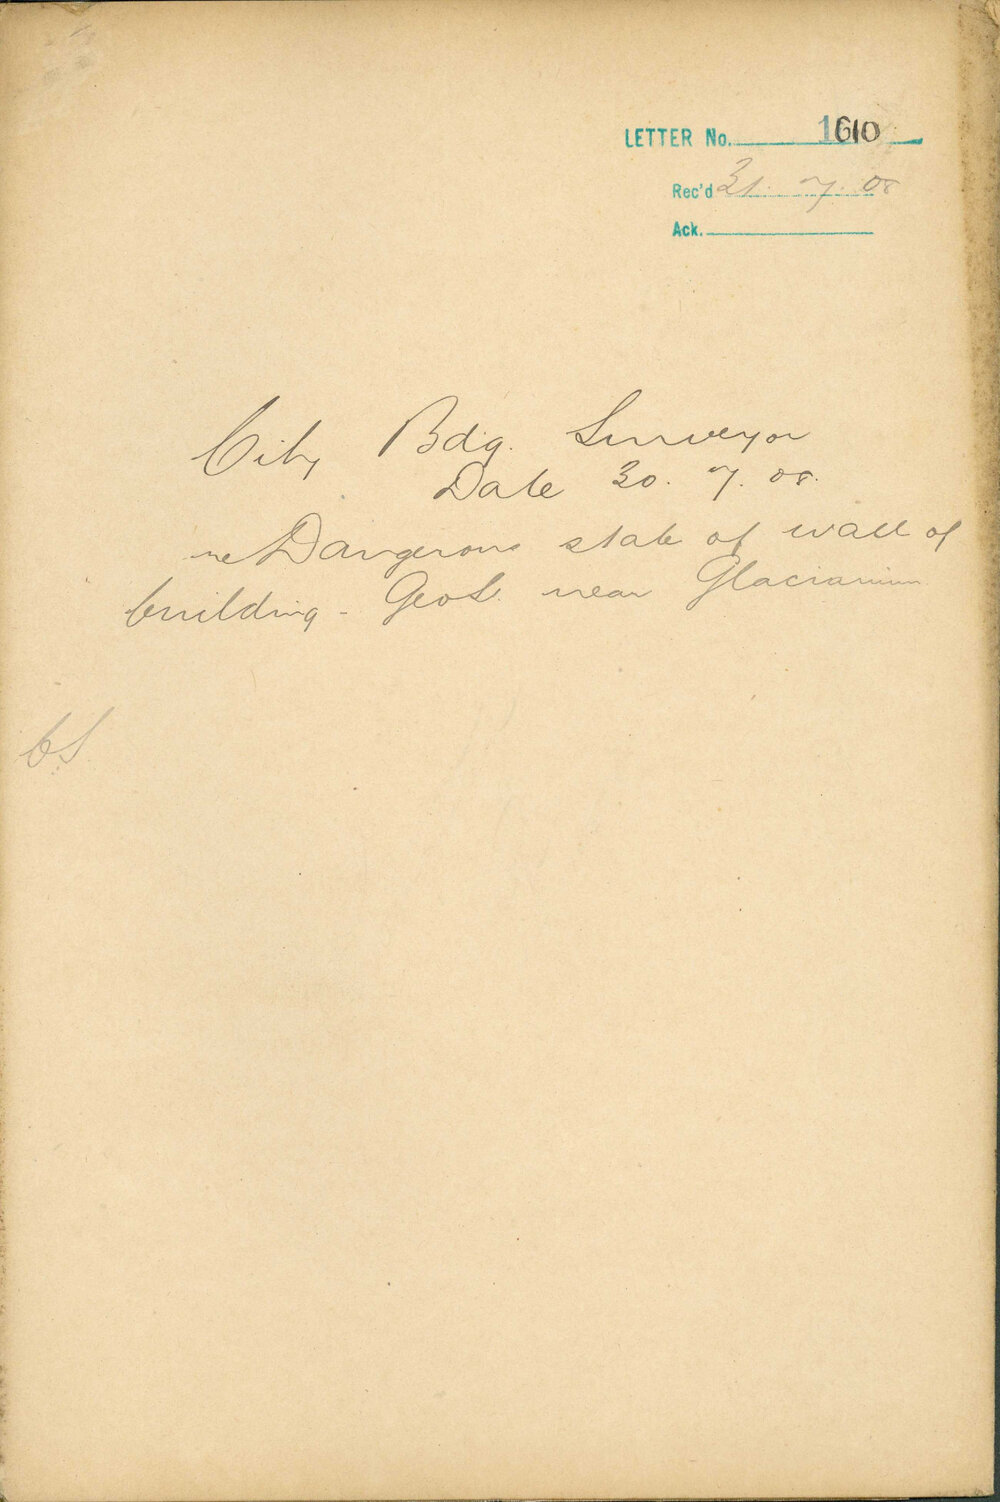 LETTER No. 1610
Rec'd 31. 7. 08
Ack.
City Bdg. Surveyor
Date 30. 7. 08.
re Dangerous state of wall of
building - Geo S. near Glaciarium
CS